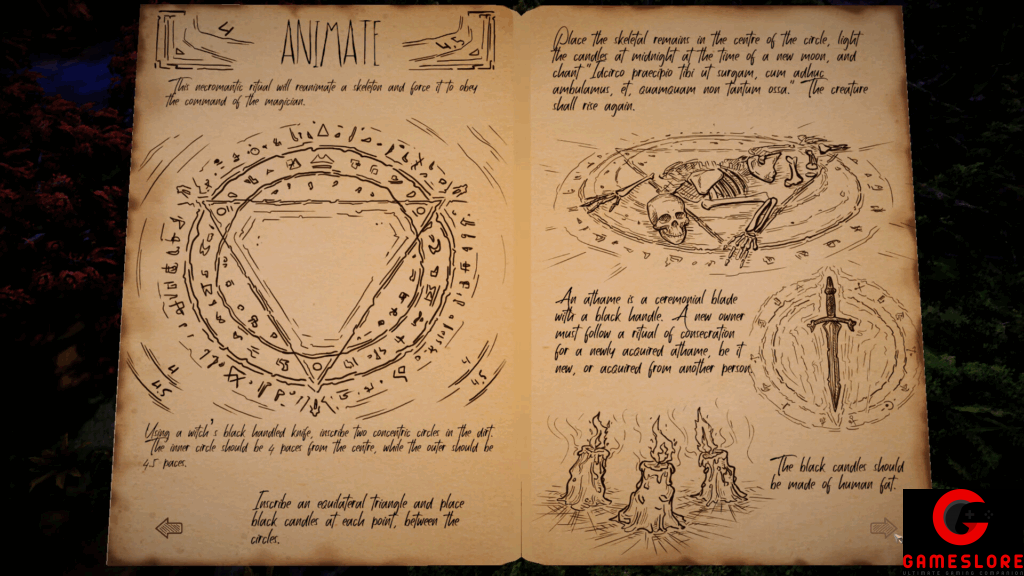 4
ANIMATE
4.5
This necromantic ritual will reanimate a skeleton and force it to obey
the command of the magician.
4
4.5
4
4.5
Using a witch's black handled knife, inscribe two concentric circles in the dirt.
The inner circle should be 4 paces from the centre, while the outer should be
4.5 paces.
Inscribe an equilateral triangle and place
black candles at each point, between the
circles.
Place the skeletal remains in the centre of the circle, light
the candles at midnight at the time of a new moon, and
chant "Idcirco praecipio tibi ut surgam, cum adhuc
ambulamus, et, quamquam non tantum ossa." The creature
shall rise again.
An athame is a ceremonial blade
with a black handle. A new owner
must follow a ritual of consecration
for a newly acquired athame, be it
new, or acquired from another person.
The black candles should
be made of human fat.
GAMESLORE
ULTIMATE GAMING COMPANION